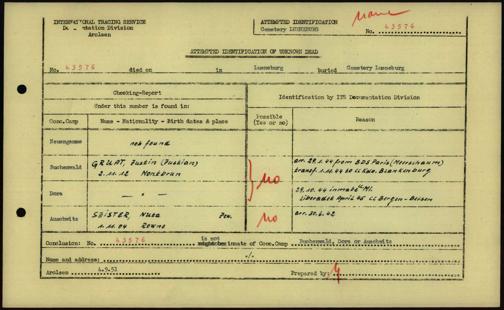 INTERNATIONAL TRACING SERVICE
Documentation Division
Arolsen
ATTEMPTED IDENTIFICATION
Cemetery LUNEBURG
No. 43576
ATTEMPTED IDENTIFICATION OF UNKNOWN DEAD
No. 43576 died on in Luneburg Buried Cemetery Luneburg
Checking-Report
Under this number is found in:
Identification by ITS Documentation Division
Conc.Camp
Name - Nationality - Birth dates & place
Possible
(Yes or no)
Reason
Neuengamme
not found
Buchenwald
GRUAT, Justin (Justian)
2.11.12 Montbrun
no
arr. 29.1.44 from BDS Paris
transf. 1.11.44 to CC Kdo. Blankenburg
Dora
- " -
29.10.44 inmate
liberated April 45 CC Bergen-Belsen
Auschwitz
Nusa Pew.
Rowne
no
arr. 30.6.42
Conclusion: No. 43576 is not inmate of Conc.Camp Buchenwald, Dora or Auschwitz
Name and address: -/-
Arolsen 4.9.51
Prepared by: